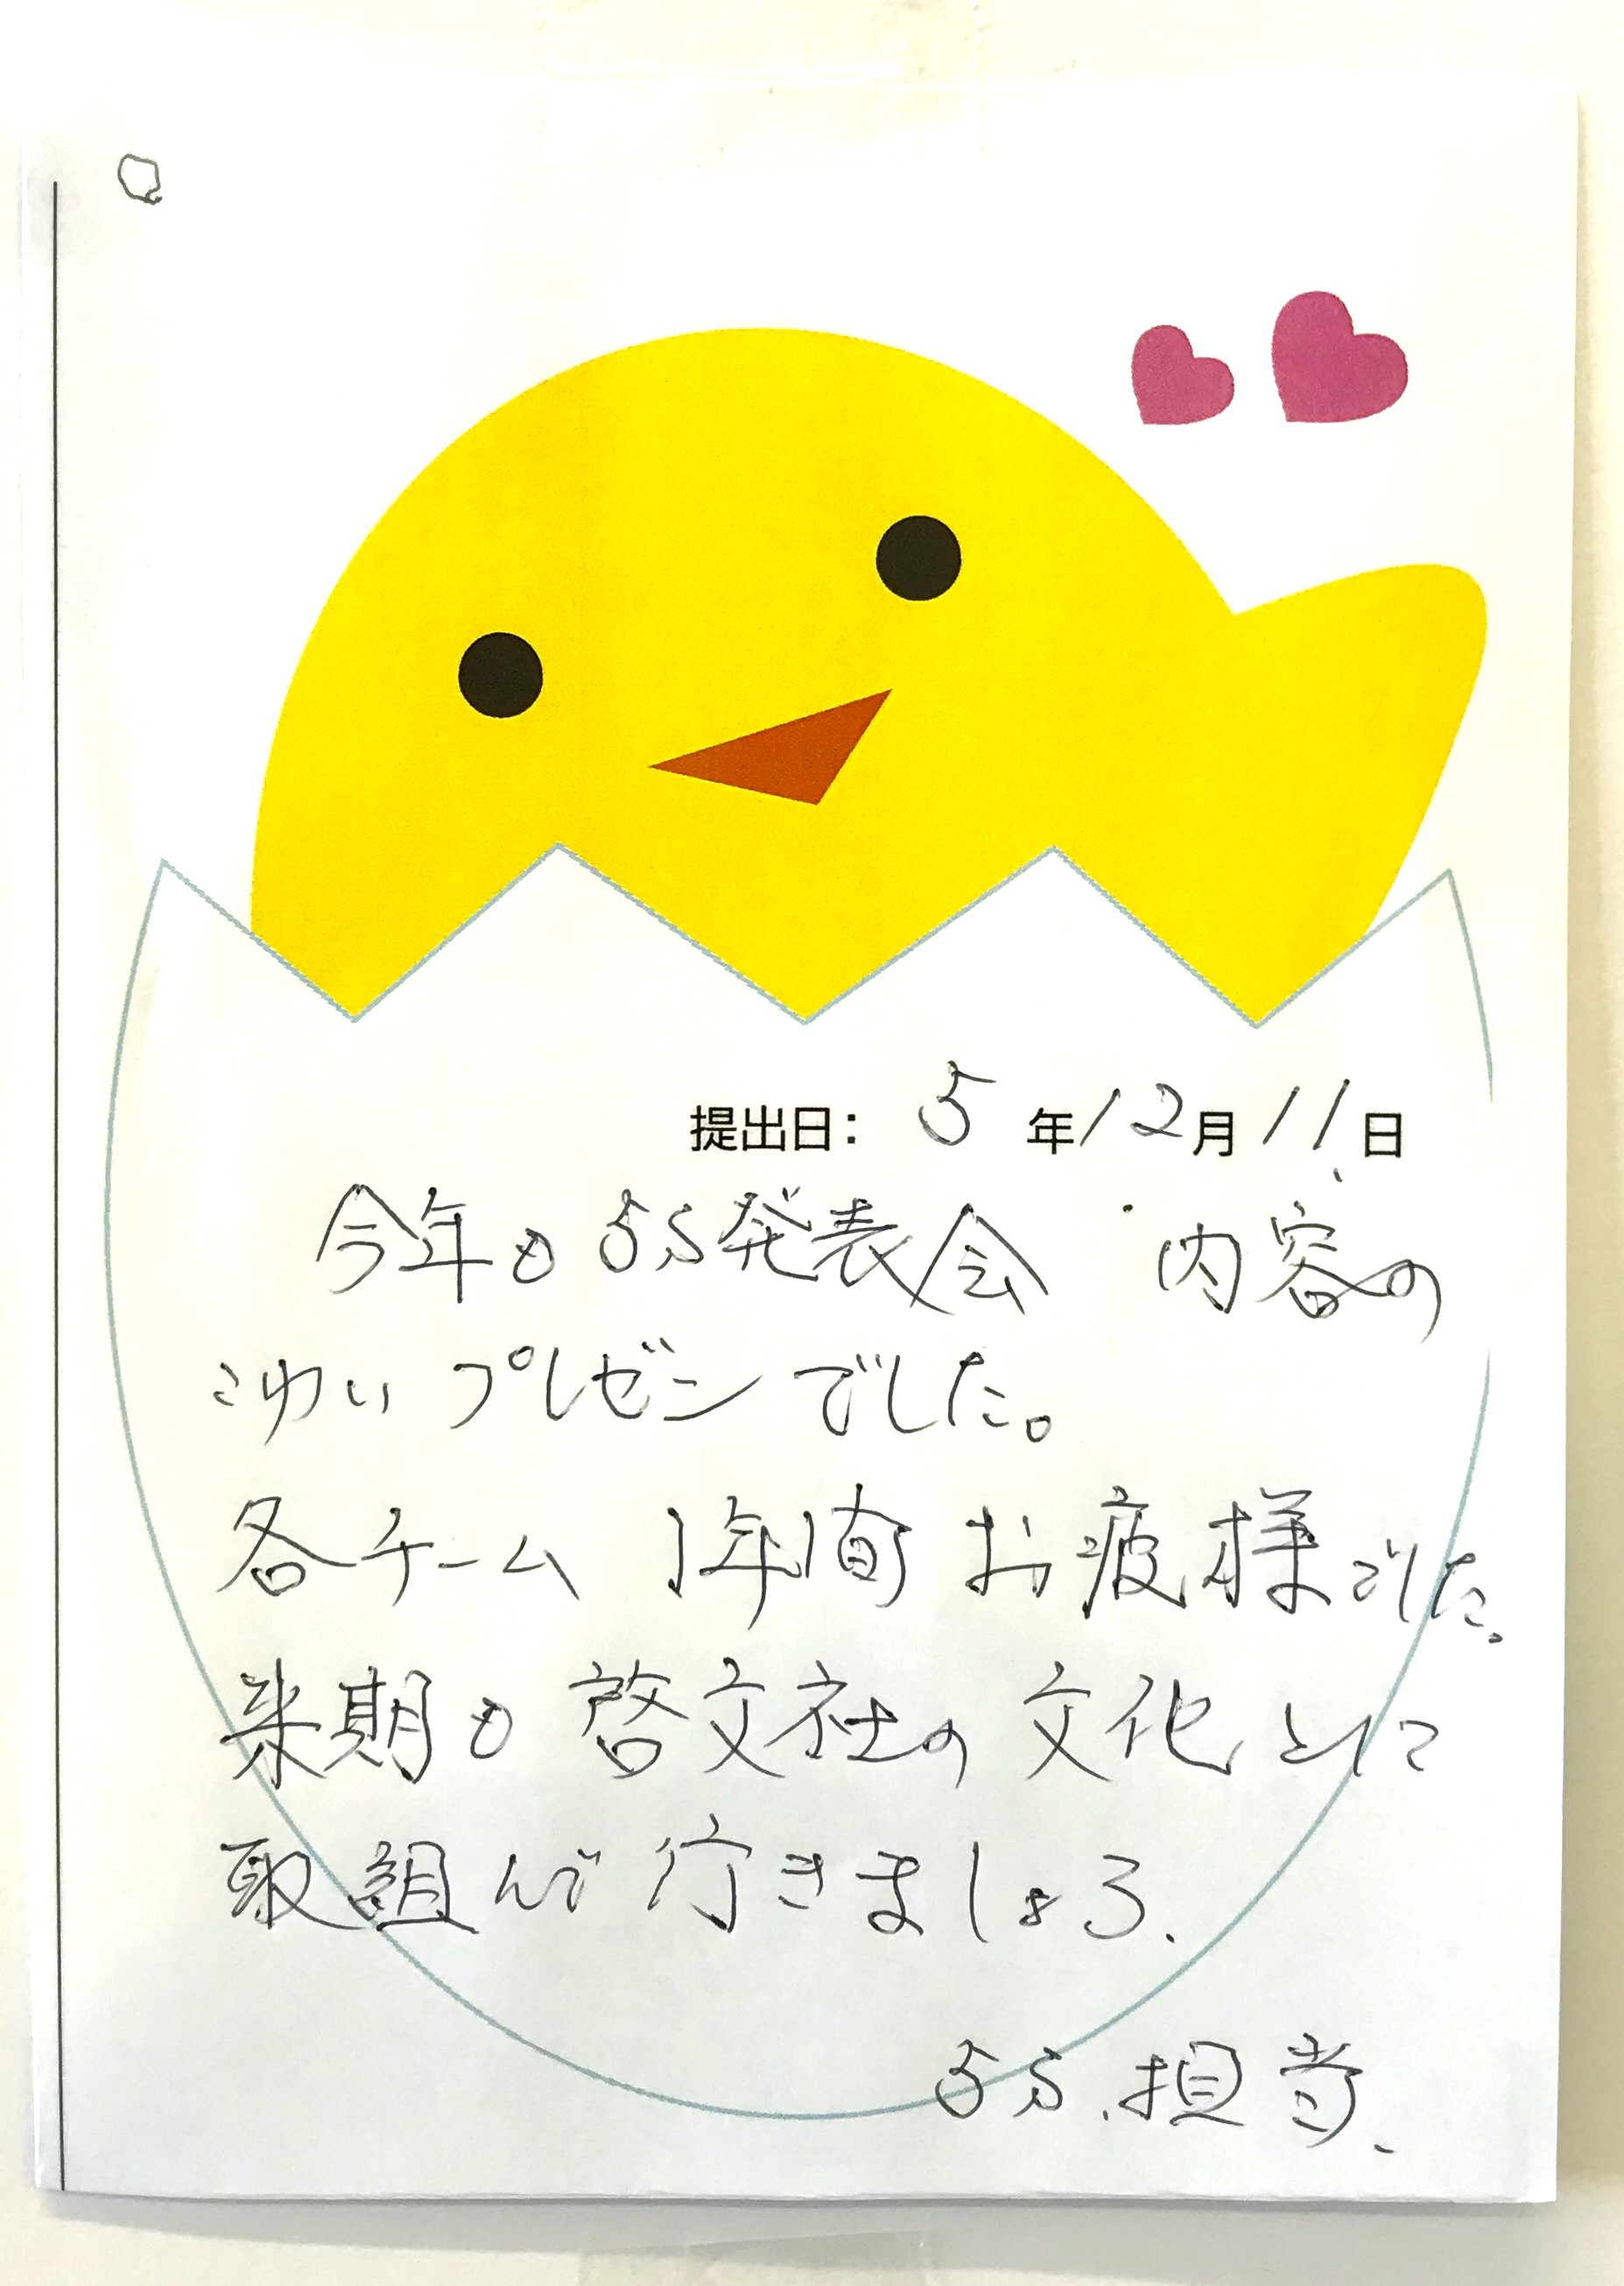 提出日： 5 年 12 月 11 日
今年も 5S発表会 内容の
こゆい プレゼン でした。
各チーム 1年間 お疲様でした。
来期も 啓文社の 文化 として
取組んで 行きましょう.
5S.担当.